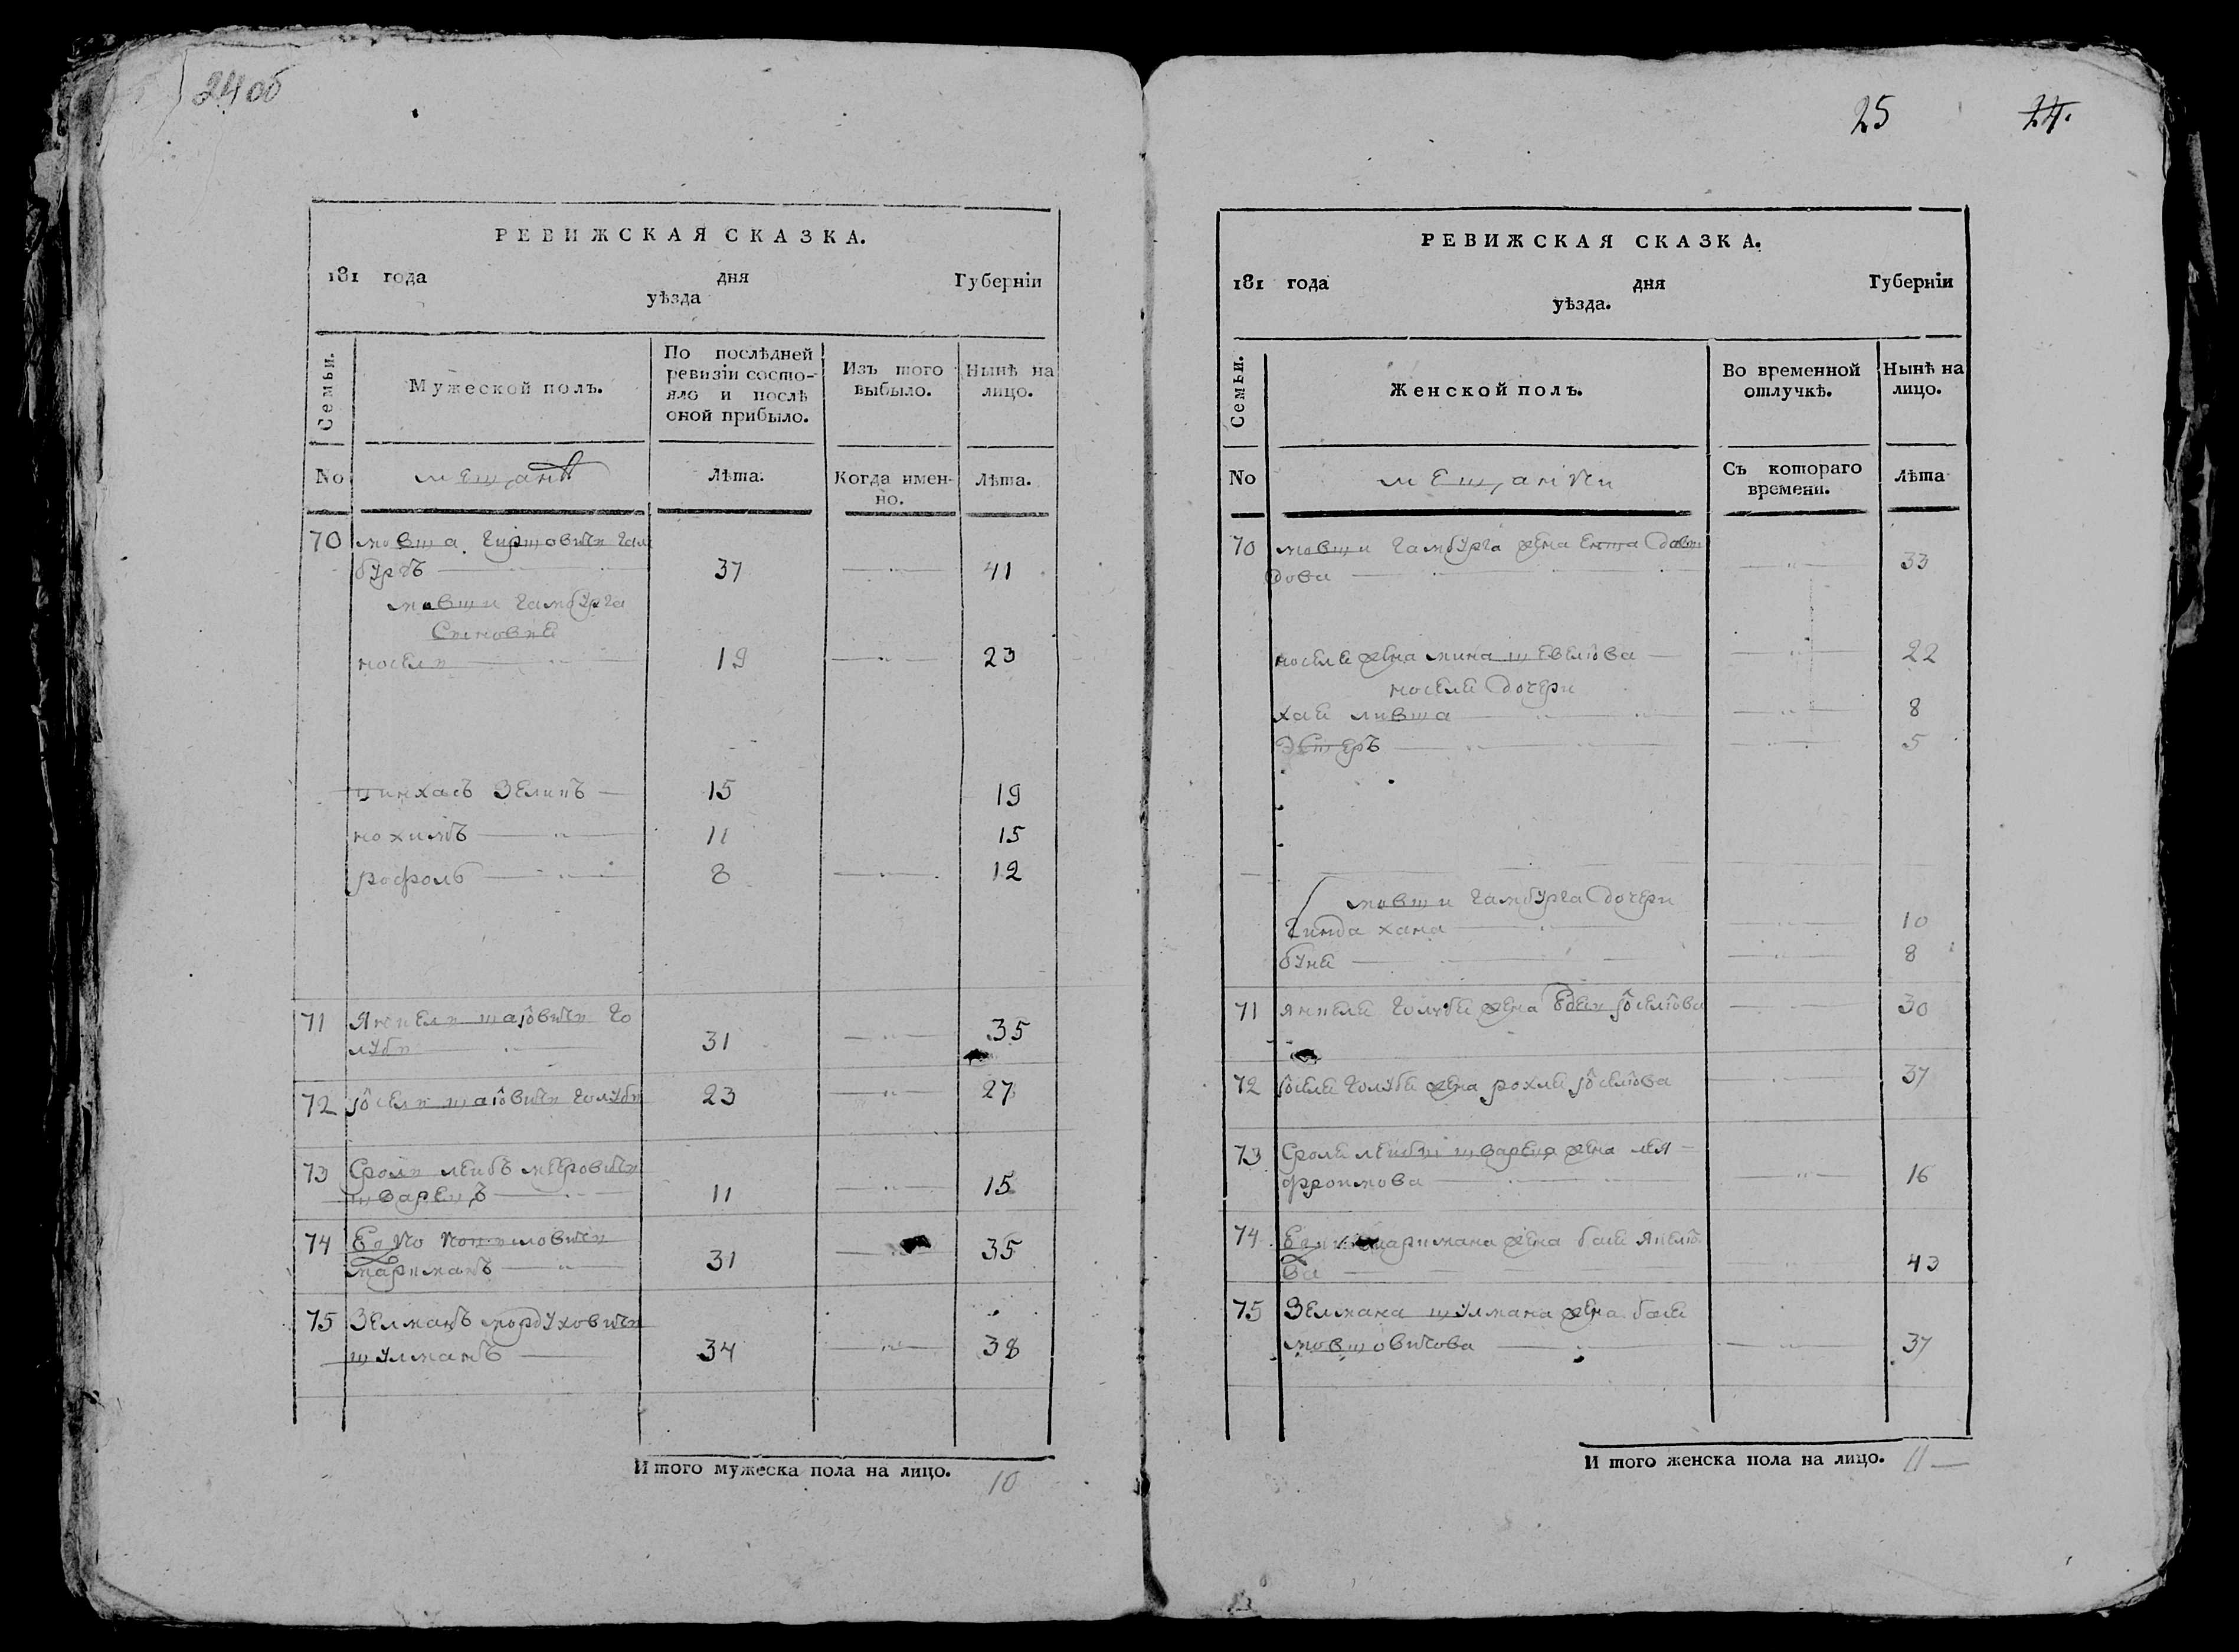 24 об
РЕВИЖСКАЯ СКАЗКА.
181 года дня Губерніи
уѣзда
Семьи. Мужеской полъ. По послѣдней ревизіи состояло и послѣ оной прибыло. Изъ того выбыло. Нынѣ на лицо.
No мещанъ Лѣта. Когда именно. Лѣта.
70 мовша гиршовичъ гам
бургъ 37 41
мовши гамбурга
Сыновьѣ
19 23
пинхасъ Зеликъ 15 19
нохимъ 11 15
рофоль 8 12
71 Янкель шаiовичь го
лубь 31 35
72 iосель шаiовичь голубь 23 27
73 Сроль леибъ мееровичь
шварецъ 11 15
74
31 35
75 Зелманъ мордуховичь
шулманъ 34 38
И того мужеска пола на лицо. 10
25 24.
РЕВИЖСКАЯ СКАЗКА.
181 года дня Губерніи
уѣзда.
Семьи. Женской полъ. Во временной отлучкѣ. Нынѣ на лицо.
No мещанки Съ котораго времени. Лѣта
70 мовши гамбурга жена Ента Дави
дова 33
жена мина шевелiова 22
Дочери
хая ливша 8
Эстеръ 5
мовши гамбурга Дочери
гинда хана 10
буне 8
71 янкеля голубя жена iоселiова 30
72 iоселя голубя жена рохля iоселiова 37
73 Сроля леибы швареца жена лея
фроимова 16
74 жена бася
ва 43
75 Зелмана шулмана жена бася
мовшовичова 37
И того женска пола на лицо. 11